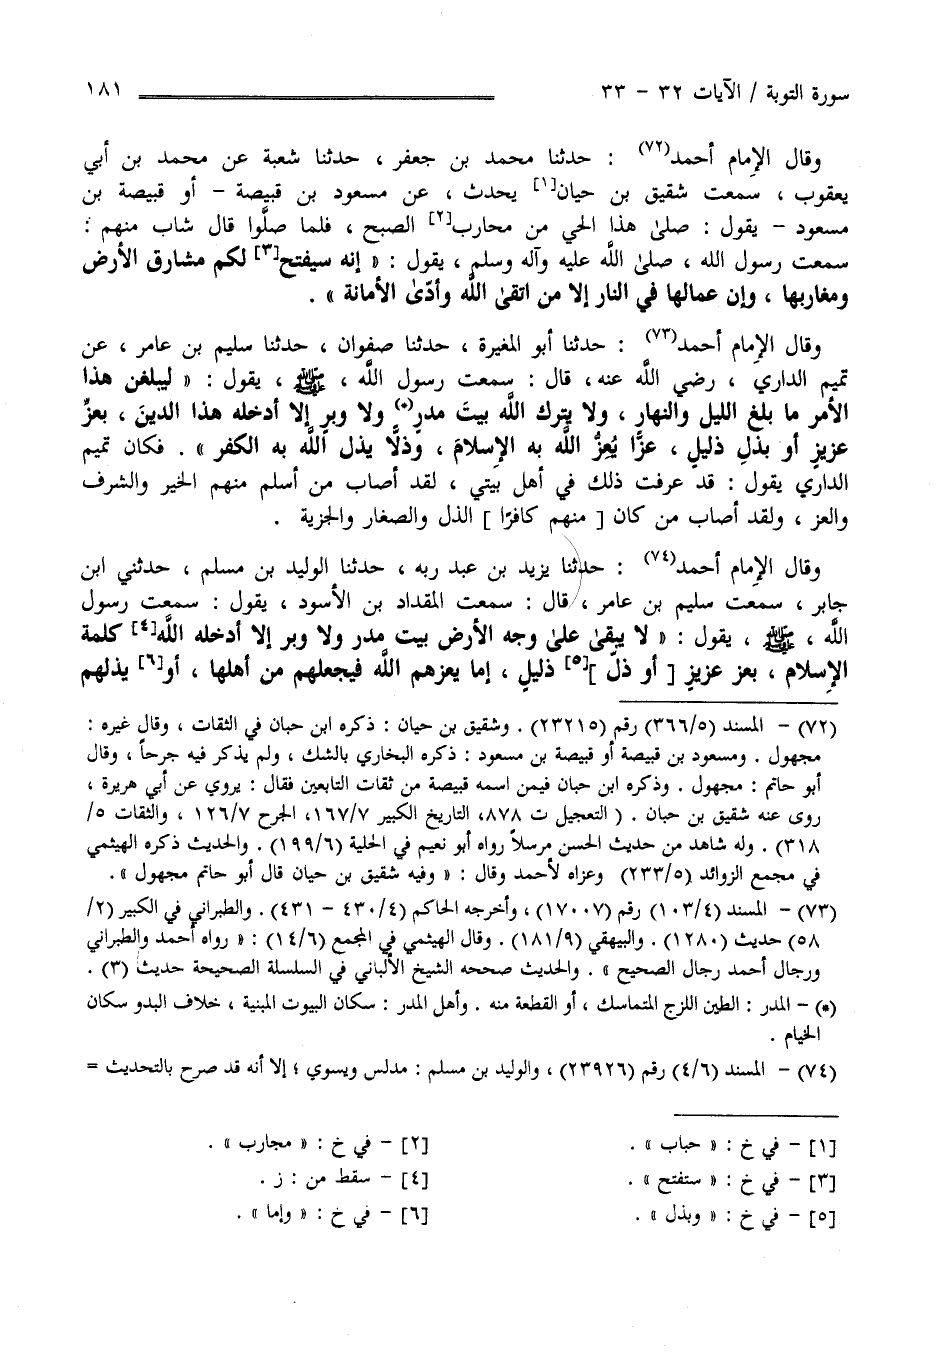 سورة التوبة / الآيات ٣٢ – ٣٣ ١٨١
وقال الإمام أحمد(٧٢) : حدثنا محمد بن جعفر ، حدثنا شعبة عن محمد بن أبي
يعقوب ، سمعت شقيق بن حيان[١] يحدث ، عن مسعود بن قبيصة – أو قبيصة بن
مسعود – يقول : صلىٰ هذا الحي من محارب[٢] الصبح ، فلما صلَّوا قال شاب منهم :
سمعت رسول الله ، صلىٰ اللَّه عليه وآله وسلم ، يقول : « إنه سيفتح[٣] لكم مشارق الأرض
ومغاربها ، وإن عمالها في النار إلا من اتقىٰ اللَّه وأدّىٰ الأمانة » .
وقال الإمام أحمد(٧٣) : حدثنا أبو المغيرة ، حدثنا صفوان ، حدثنا سليم بن عامر ، عن
تميم الداري ، رضي اللَّه عنه، قال : سمعت رسول اللَّه ، ﷺ ، يقول : « ليبلغن هذا
الأمر ما بلغ الليل والنهار ، ولا يترك اللَّه بيتَ مدرٍ(*) ولا وبرٍ إلا أدخله هذا الدينَ ، بعزِّ
عزيزٍ أو بذلِ ذليلٍ ، عزًّا يُعِزُّ اللَّه به الإسلامَ ، وذلًّا يذل اللَّه به الكفر » . فكان تميم
الداري يقول : قد عرفت ذلك في أهل بيتي ، لقد أصاب من أسلم منهم الخير والشرف
والعز ، ولقد أصاب من كان [ منهم كافرًا ] الذل والصغار والجزية .
وقال الإمام أحمد(٧٤) : حدثنا يزيد بن عبد ربه ، حدثنا الوليد بن مسلم ، حدثني ابن
جابر ، سمعت سليم بن عامر ، قال : سمعت المقداد بن الأسود ، يقول : سمعت رسول
اللَّه ، ﷺ ، يقول : « لا يبقىٰ علىٰ وجه الأرض بيت مدر ولا وبر إلا أدخله اللَّه[٤] كلمة
الإسلام ، بعز عزيزٍ [ أو ذلّ ][٥] ذليلٍ ، إما يعزهم اللَّه فيجعلهم من أهلها ، أو[٦] يذلهم
(٧٢) – المسند (٣٦٦/٥) رقم (٢٣٢١٥) . وشقيق بن حيان : ذكره ابن حبان في الثقات ، وقال غيره :
مجهول . ومسعود بن قبيصة أو قبيصة بن مسعود : ذكره البخاري بالشك ، ولم يذكر فيه جرحاً ، وقال
أبو حاتم : مجهول . وذكره ابن حبان فيمن اسمه قبيصة من ثقات التابعين فقال : يروي عن أبي هريرة ،
روى عنه شقيق بن حبان . ( التعجيل ت ٨٧٨، التاريخ الكبير ١٦٧/٧، الجرح ١٢٦/٧ ، والثقات ٥/
٣١٨) . وله شاهد من حديث الحسن مرسلاً رواه أبو نعيم في الحلية (١٩٩/٦) . والحديث ذكره الهيثمي
في مجمع الزوائد (٢٣٣/٥) وعزاه لأحمد وقال : « وفيه شقيق بن حيان قال أبو حاتم مجهول ».
(٧٣) – المسند (١٠٣/٤) رقم (١٧٠٠٧) ، وأخرجه الحاكم (٤٣٠/٤ – ٤٣١) . والطبراني في الكبير (٢/
٥٨) حديث (١٢٨٠) . والبيهقي (١٨١/٩) . وقال الهيثمي في المجمع (١٤/٦) : « رواه أحمد والطبراني
ورجال أحمد رجال الصحيح » . والحديث صححه الشيخ الألباني في السلسلة الصحيحة حديث (٣) .
(*) – المدر : الطين اللزج المتماسك ، أو القطعة منه . وأهل المدر : سكان البيوت المبنية ، خلاف البدو سكان
الخيام .
(٧٤) – المسند (٤/٦) رقم (٢٣٩٢٦) ، والوليد بن مسلم : مدلس ويسوي ؛ إلا أنه قد صرح بالتحديث =
[١] – في خ : « حباب » . [٢] – في خ : « مجارب » .
[٣] – في خ : « ستفتح » . [٤] – سقط من : ز .
[٥] – في خ : « وبذل » . [٦] – في خ : « وإما » .